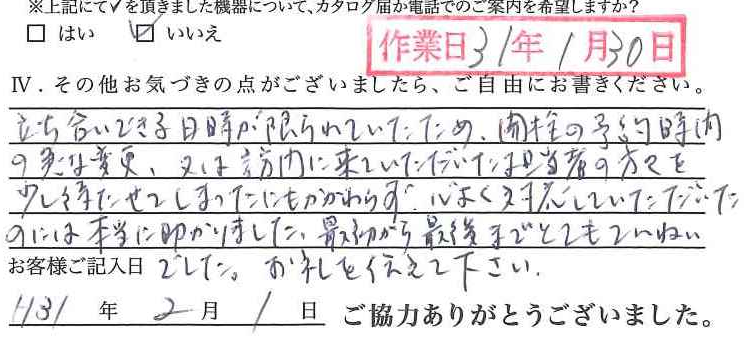 ※上記にて✓を頂きました機器について、カタログ届か電話でのご案内を希望しますか?
□ はい ☑ いいえ
作業日 31年 1月30日
Ⅳ．その他お気づきの点がございましたら、ご自由にお書きください。
立ち合いできる日時が限られていたため、開栓の予約時間
の急な変更、又は訪問に来ていただいた担当者の方々を
少し待たせてしまったにもかかわらず、心よく対応していただいた
のには本当に助かりました。最初から最後までとてもていねい
でした。お礼を伝えて下さい。
お客様ご記入日
H31 年 2 月 1 日 ご協力ありがとうございました。